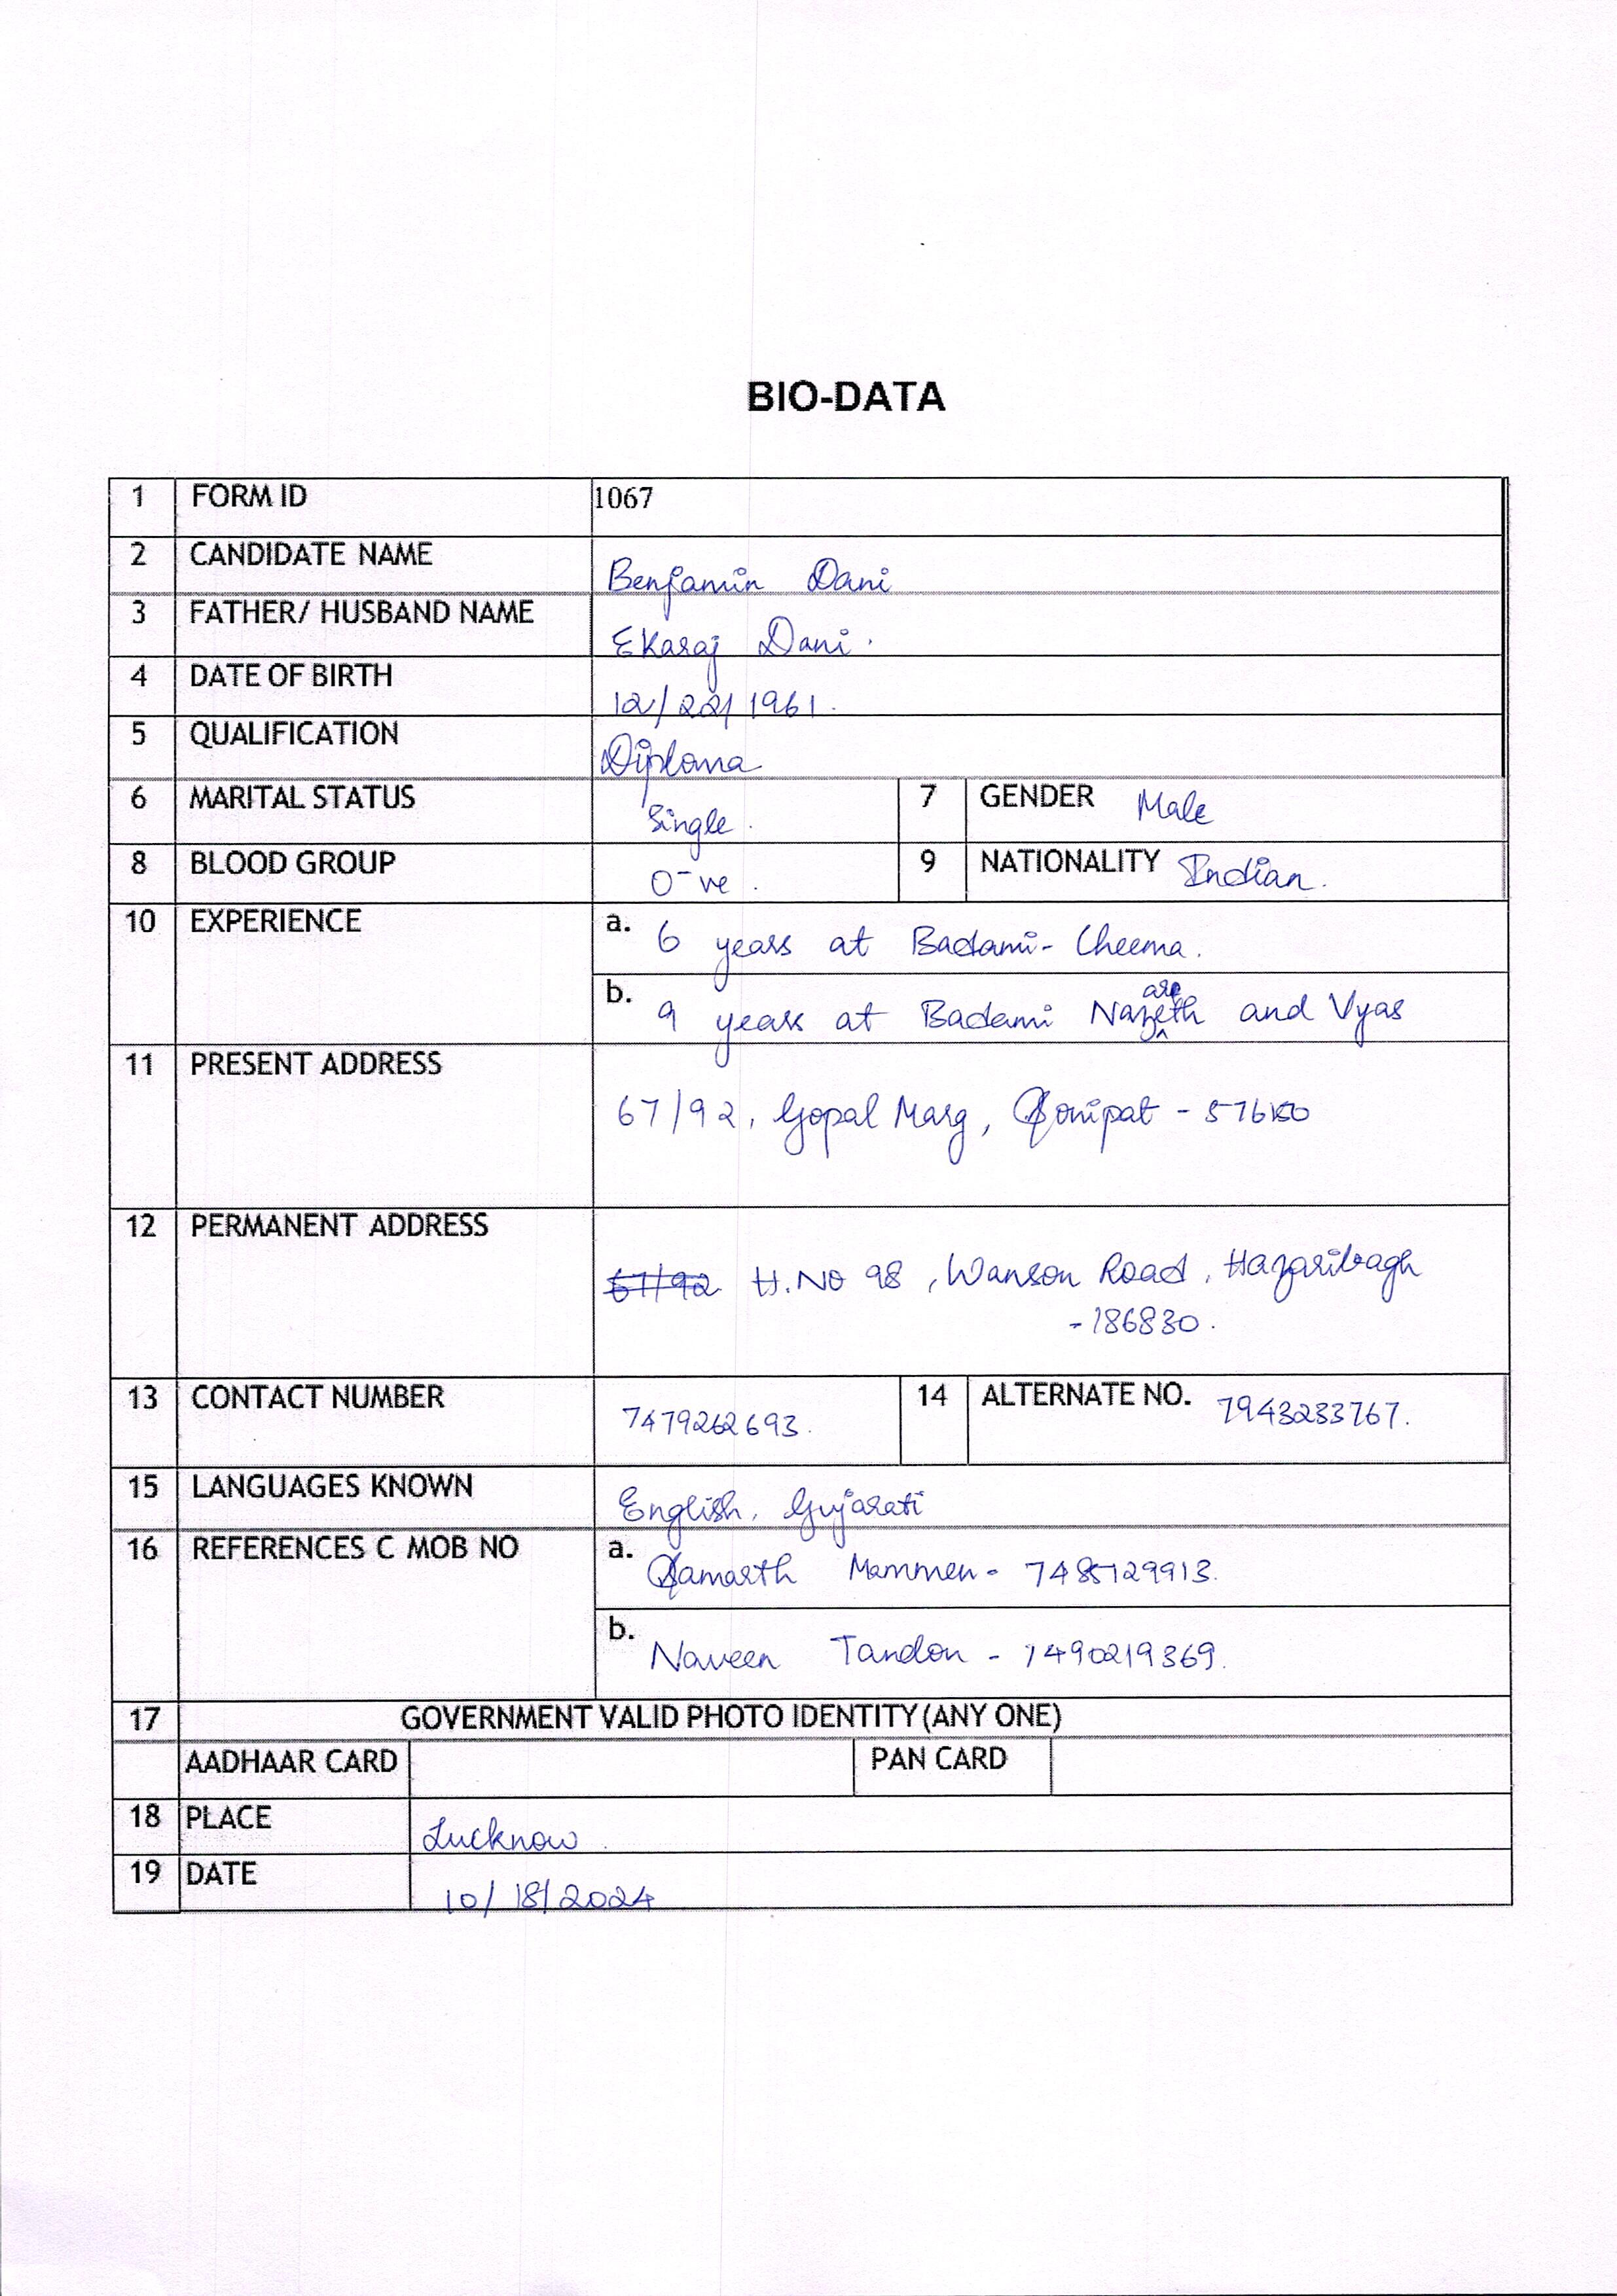 BIO-DATA
1 FORM ID 1067
2 CANDIDATE NAME Benjamin Dani
3 FATHER/ HUSBAND NAME Ekaraj Dani.
4 DATE OF BIRTH 12/22/1961.
5 QUALIFICATION Diploma
6 MARITAL STATUS Single. 7 GENDER Male
8 BLOOD GROUP O-ve. 9 NATIONALITY Indian.
10 EXPERIENCE a. 6 years at Badami-Cheema.
b. 9 years at Badami Nazareth and Vyas
11 PRESENT ADDRESS
67/92, Gopal Marg, Sonipat -
12 PERMANENT ADDRESS
67/92 H.No 98, Wanson Road, Hazaribagh
-186830.
13 CONTACT NUMBER 7479262693. 14 ALTERNATE NO. 7943233767.
15 LANGUAGES KNOWN English, Gujarati
16 REFERENCES C MOB NO a. Samarth Mammen - 7485129913.
b. Naveen Tandon - 7490219369.
17 GOVERNMENT VALID PHOTO IDENTITY(ANY ONE)
AADHAAR CARD PAN CARD
18 PLACE Lucknow.
19 DATE 10/18/2024